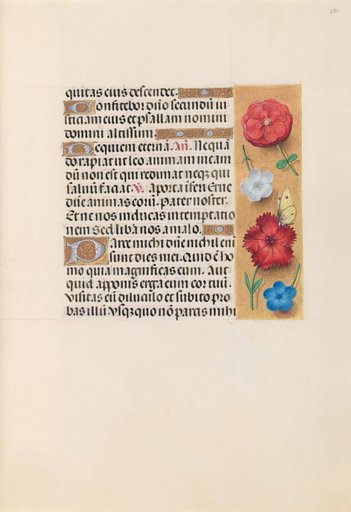 quitas eius descendet.
Confitebor dño secundũ iu
sticiam eius et psallam nomini
domini altissimi.
Requiem eternã. Añ. Nequã
do rapiat ut leo animam meam
dũ non est qui redimat neqꝫ qui
saluũ faciat. ℣. A porta īferi. Erue
dñe animas eorũ. Pater noster.
Et ne nos inducas in temptatio
nem. Sed libera nos a malo.
Parce michi dñe nichil eni
sunt dies mei. Quid ē ho
mo quia magnificas eum. Aut
quid apponis erga eum cor tuũ.
Visitas eũ diluculo et subito pro
bas illũ. Usqꝫ quo nō parcis mihi